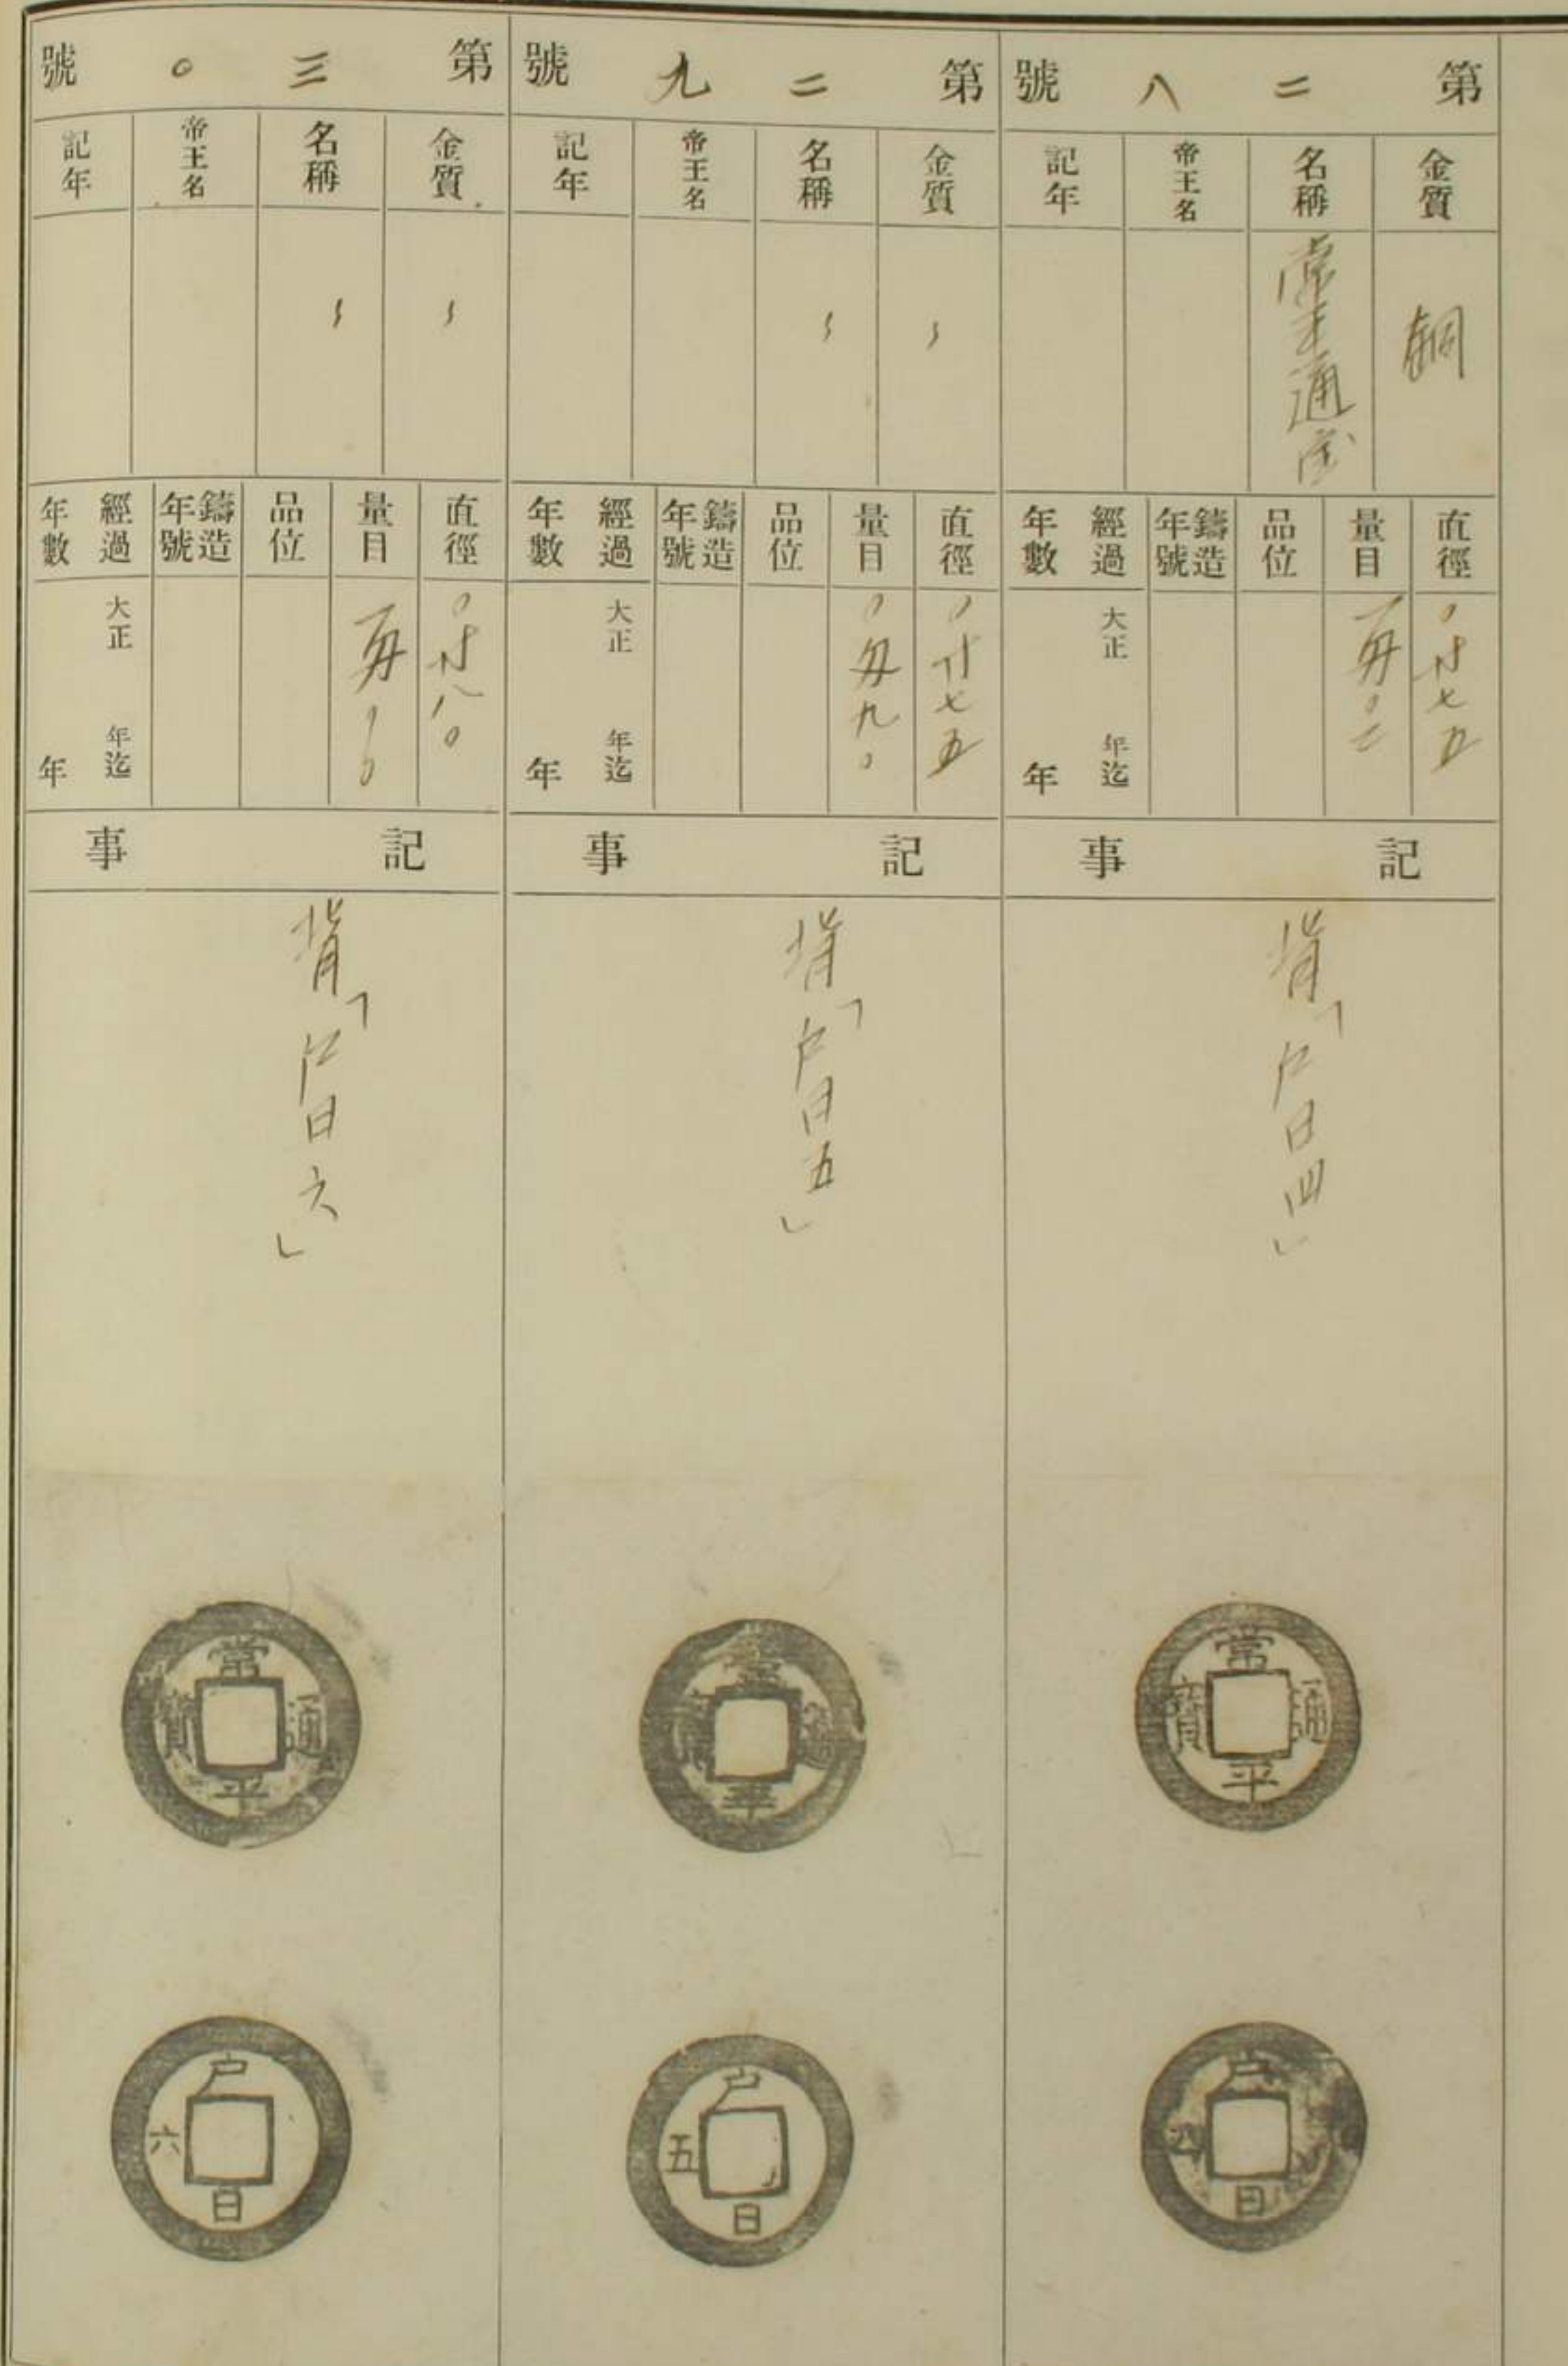 第二八號
金質
銅
名稱
常平通宝
帝王名
記年
直徑
〇寸七五
量目
一匁〇二
品位
鑄造年號
經過年數
大正　年迄
年
記事
背「户日四」
常平通寶
户日四
第二九號
金質
〻
名稱
〻
帝王名
記年
直徑
〇寸七五
量目
〇匁九〇
品位
鑄造年號
經過年數
大正　年迄
年
記事
背「户日五」
常平通寶
户日五
第三〇號
金質
〻
名稱
〻
帝王名
記年
直徑
〇寸八〇
量目
品位
鑄造年號
經過年數
大正　年迄
年
記事
背「户日六」
常平通寶
户日六